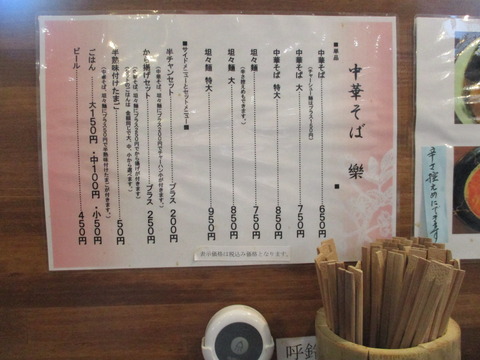 中華そば 樂
■単品 ■
中華そば 650円
(チャーシュー麺はプラス150円)
中華そば 大 750円
中華そば 特大 850円
坦々麺 750円
(辛さ控えめもできます。)
坦々麺 大 850円
坦々麺 特大 950円
■サイドメニューとセットメニュー■
半チャンセット プラス 200円
(中華そば、坦々麺にプラス200円でチャーハン中が付きます。)
から揚げセット プラス 250円
(中華そば、坦々麺にプラス250円でから揚げが付きます。)
半熟味付けたまご 50円
ごはん 大150円・中100円・小50円
ビール 450円
表示価格は税込み価格となります。
辛さ控えめにできます
呼鈴